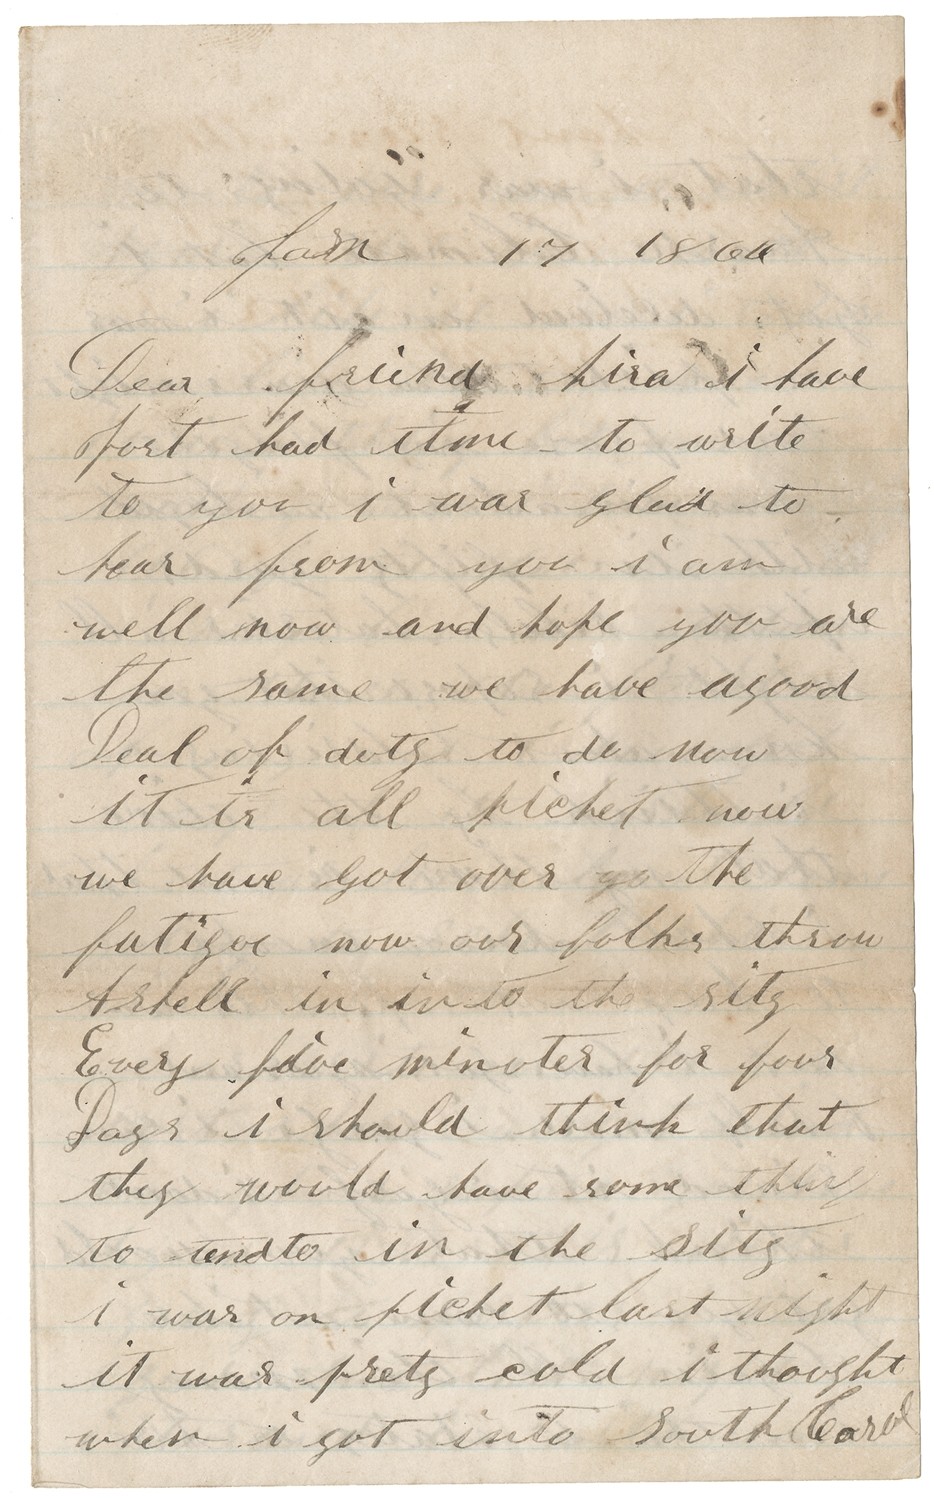 Jan 17 1864
Dear friend hira i have
Jost had time to write
to you i was glad to
hear from you i am
well now and hope you are
the same we have agood
Deal of doty to do now
it is all picket now
we have got over go the
fatigoe now our folks throu
Ashell in in to the sity
Every five minotes for four
Days i should think that
they would have some thing
to tendto in the Sity
i was on picket last night
it was prety cold i thought
when i got into South Carol